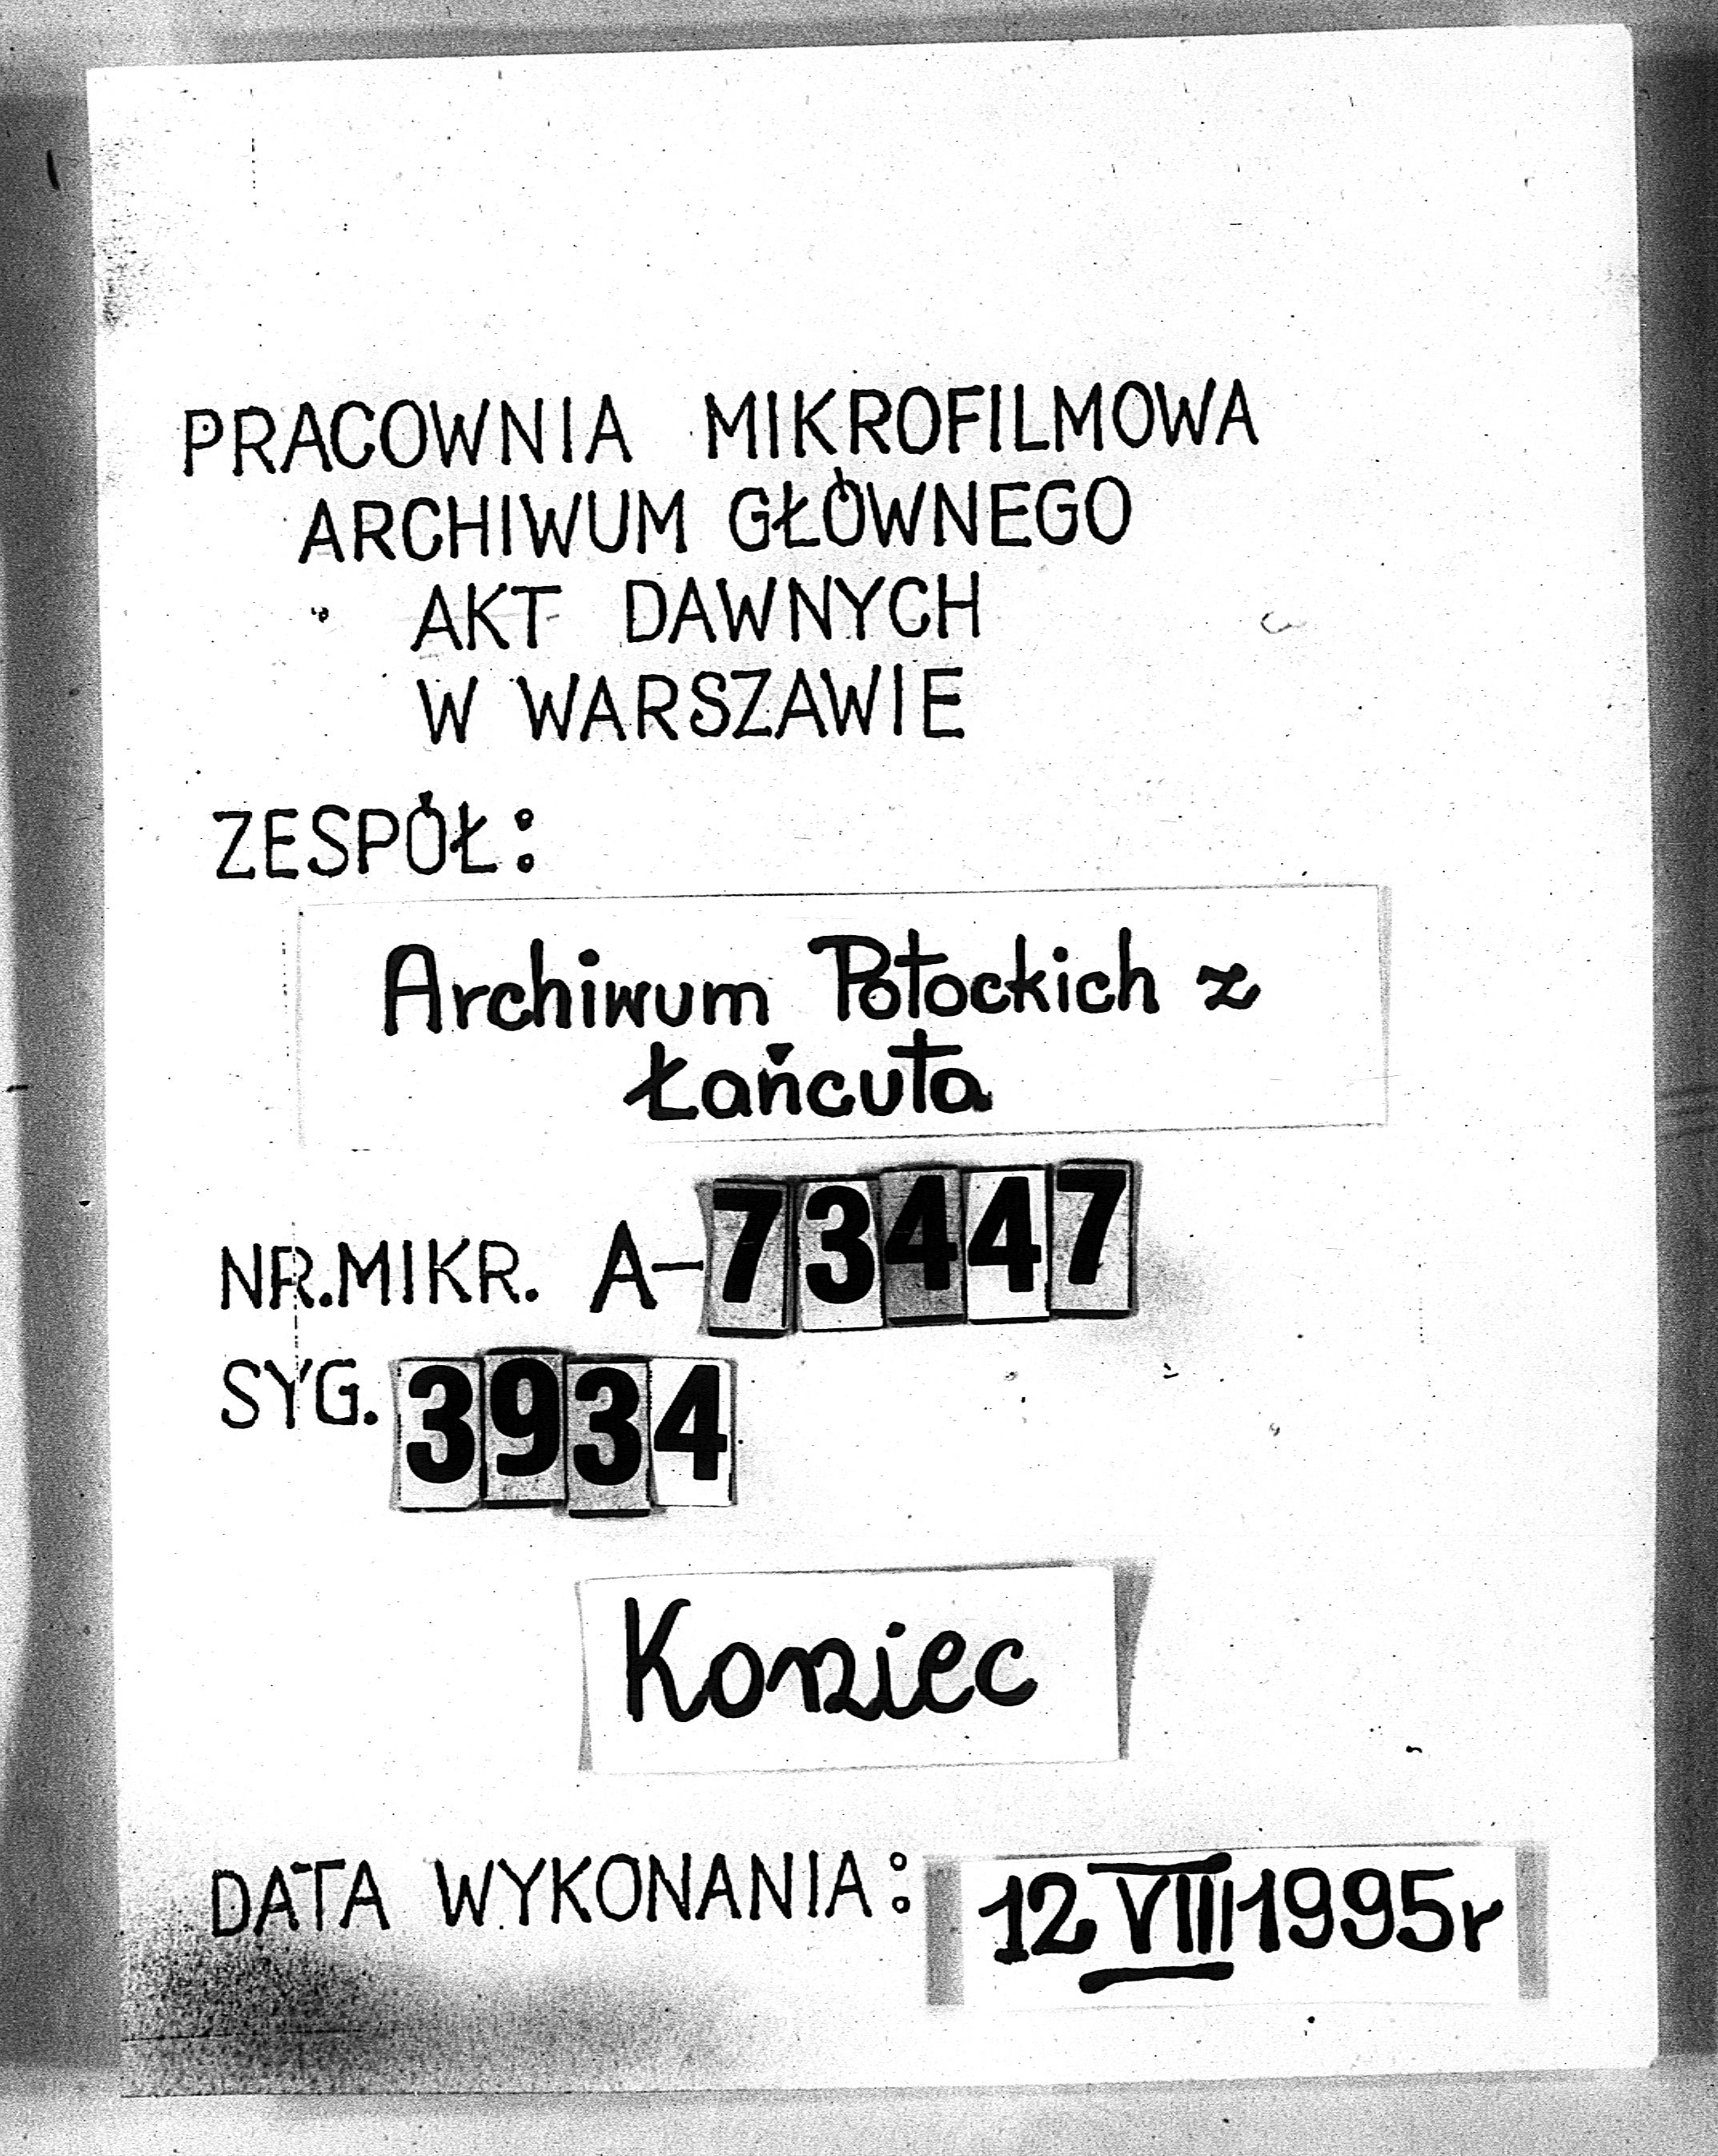 PRACOWNIA MIKROFILMOWA
ARCHIWUM GŁÓWNEGO
AKT DAWNYCH
W WARSZAWIE
ZESPÓŁ:
Archiwum Potockich z
Łańcuta
NR.MIKR. A-73447
SYG. 3934
Koniec
DATA WYKONANIA: 12 VIII 1995r